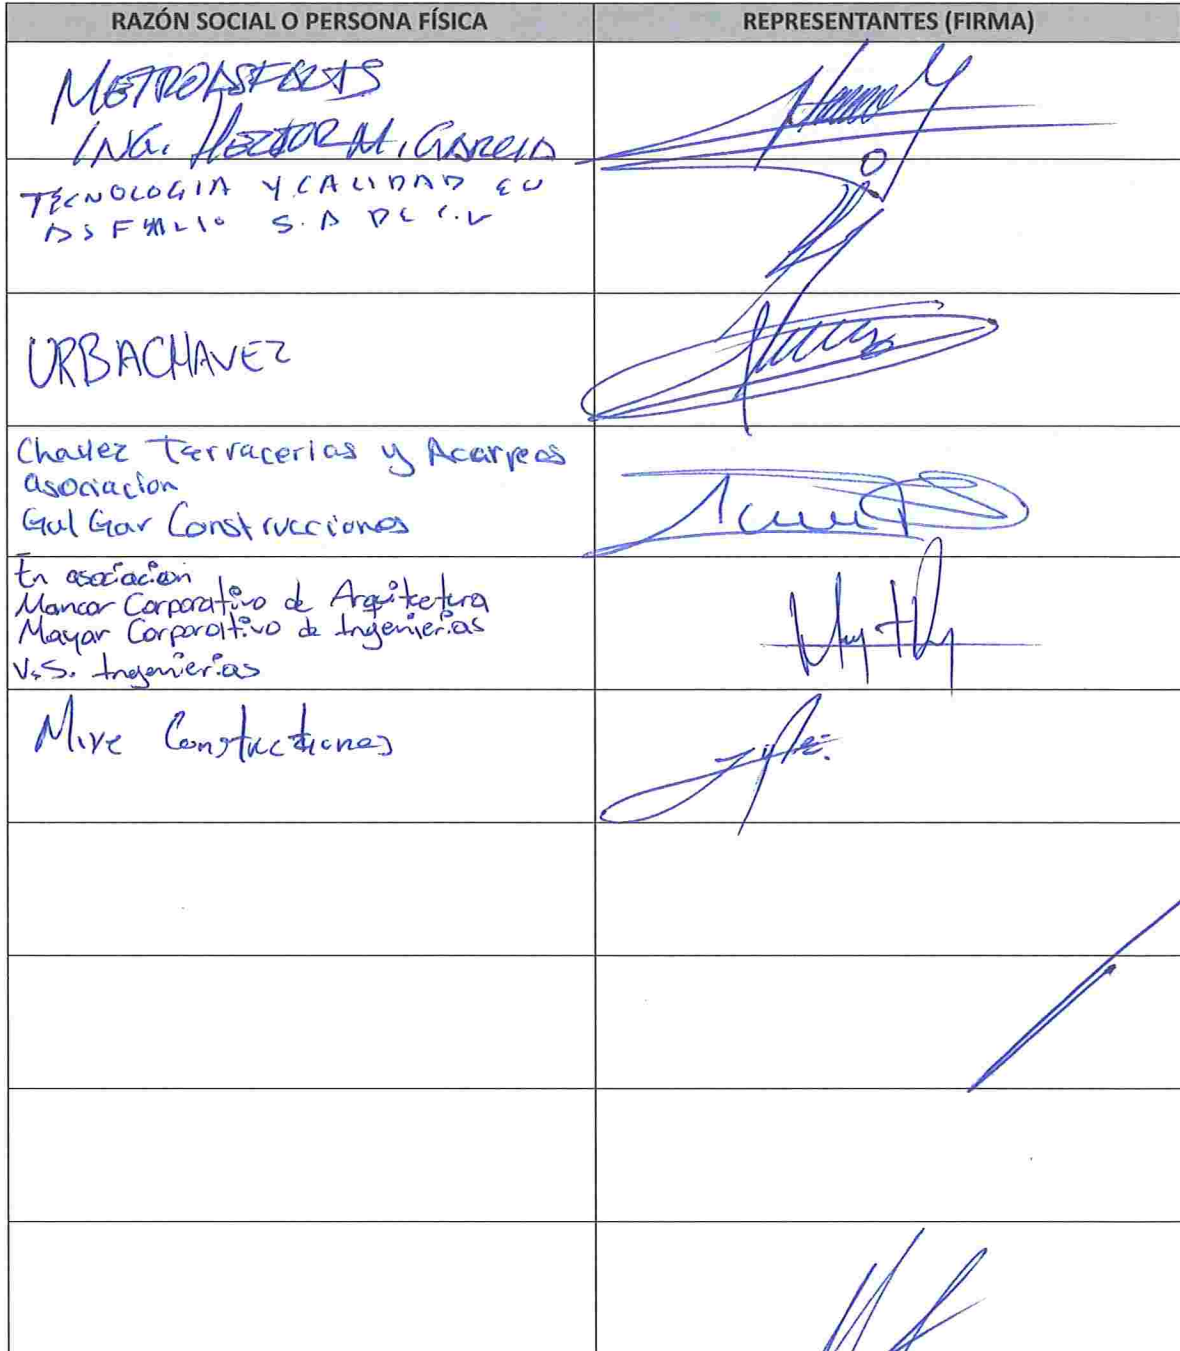 RAZÓN SOCIAL O PERSONA FÍSICA
REPRESENTANTES (FIRMA)
METROASFALTOS
ING. HECTOR M. GARCIA
TECNOLOGIA Y CALIDAD EN
ASFALTO S.A DE C.V
URBACHAVEZ
Chavez Terracerias y Acarreos
asociacion
Gul Gar Construcciones
En asociación
Mancor Corporativo de Arquitetura
Mayar Corporativo de Ingenierias
V.S. Ingenierias
Mire Construcciones